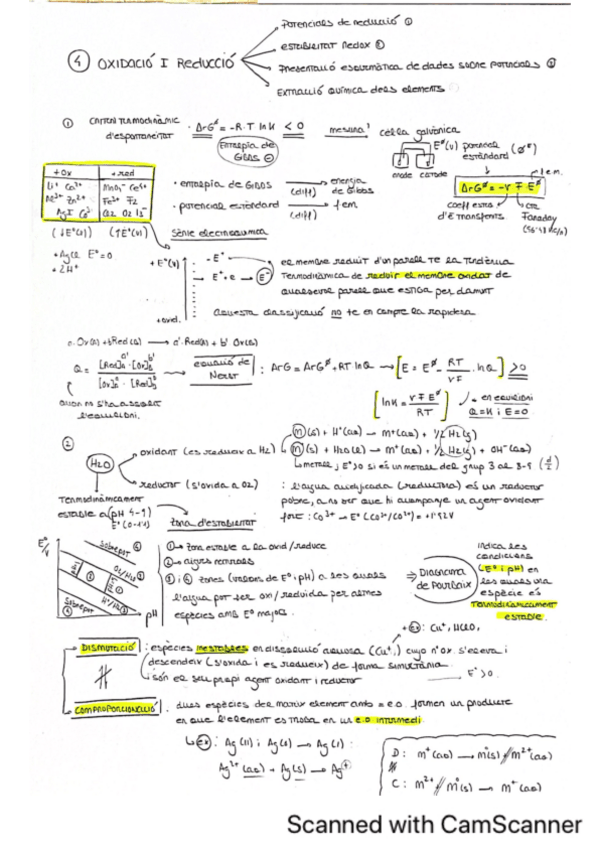 Potencials de reducció ①
④ OXIDACIÓ I REDUCCIÓ
estabilitat Redox ②
Presentació esquemàtica de dades sobre potencials ③
Extracció química dels elements
① Criteri termodinàmic d'espontaneïtat · ΔrG° = -R·T lnK < 0
mesura
cel·la galvànica
Entalpia de Gibbs
E°(V) potencial estàndard (ø°)
ànode càtode
+ox +red
Li⁺ Ca²⁺ MnO₄⁻ Ce⁴⁺
Al³⁺ Zn²⁺ Fe³⁺ F₂
· entalpia de Gibbs (diff) energia de Gibbs
· potencial estàndard (diff) fem
ΔrG° = -ν F E°
fem
coef estq d'e⁻ transferits
cte Faraday
(↓E°(V)) (↑E°(V))
Sèrie electroquímica
E°=0
+2H⁺
+E°(V)
-E°
el membre reduït d'un parell té la tendència
termodinàmica de reduir el membre oxidat de
qualsevol parell que estigui per damunt
+oxid.
Aquesta classificació no té en compte la rapidesa
equació de Nernst : ΔrG = ΔrG° + RT lnQ → [E = E° - RT/νF · lnQ] > 0
quan no s'ha assolit l'equilibri.
[lnK = νFE°/RT]
en equilibri Q=K i E=0
②
H₂O
oxidant (es redueix a H₂)
M(s) + H⁺(aq) → M⁺(aq) + 1/2 H₂(g)
M(s) + H₂O(l) → M⁺(aq) + 1/2 H₂(g) + OH⁻(aq)
reductor (s'oxida a O₂)
: l'aigua acidificada (reductora) és un reductor
pobre, a no ser que hi acompanyi un agent oxidant
fort : Co³⁺ → E°(Co³⁺/Co²⁺) = +1'92V
Termodinàmicament estable a (pH 4-9)
Zona d'estabilitat
E°/V
Sobrepot
O₂/H₂O
H⁺/H₂
Sobrepot
pH
① → Zona estable a la oxid/reduce
② → aigües normals
③ i ④ zones (valors de E° i pH) a les quals
l'aigua pot ser oxi/reduïda per altres
espècies amb E° majors.
⇒ Diagrama de Pourbaix
indica les condicions (E° i pH) en les quals una espècie és termodinàmicament estable.
+ ex: Cu⁺, HClO,
DISMUTACIÓ : espècies inestables en dissolució aquosa (Cu⁺,) cuyo nºox. s'eleva i
descendeix (s'oxida i es redueix) de forma simultània
són el seu propi agent oxidant i reductor → E°>0
COMPROPORCIONACIÓ : dues espècies del mateix element amb ≠ e.o. formen un producte
en que l'element es troba en un e.o intermedi.
ex: Ag(II) i Ag(0) → Ag(I) :
Ag²⁺(aq) + Ag(s) → Ag⁺
D: M⁺(aq) → M(s) // M²⁺(aq)
C: M²⁺ // M(s) → M⁺(aq)
Scanned with CamScanner